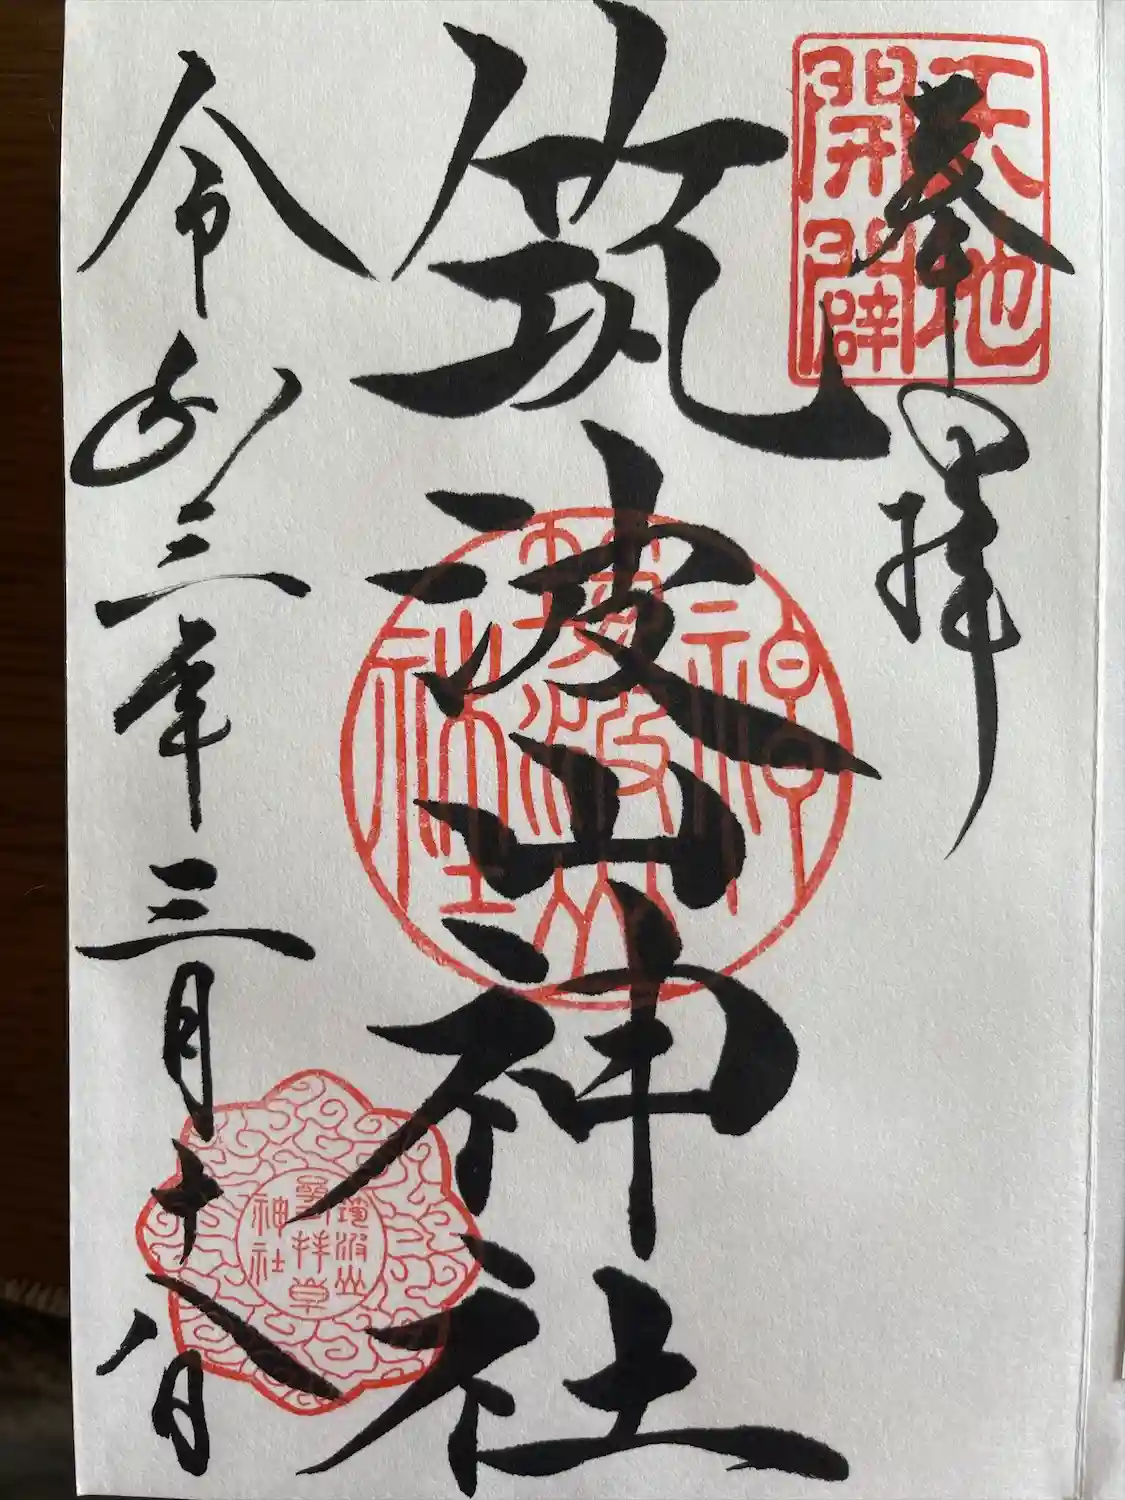 奉拝
天地
開闢
筑波山神社
筑波山
神
社
令和三年三月十八日
筑波山
拝堂
神社